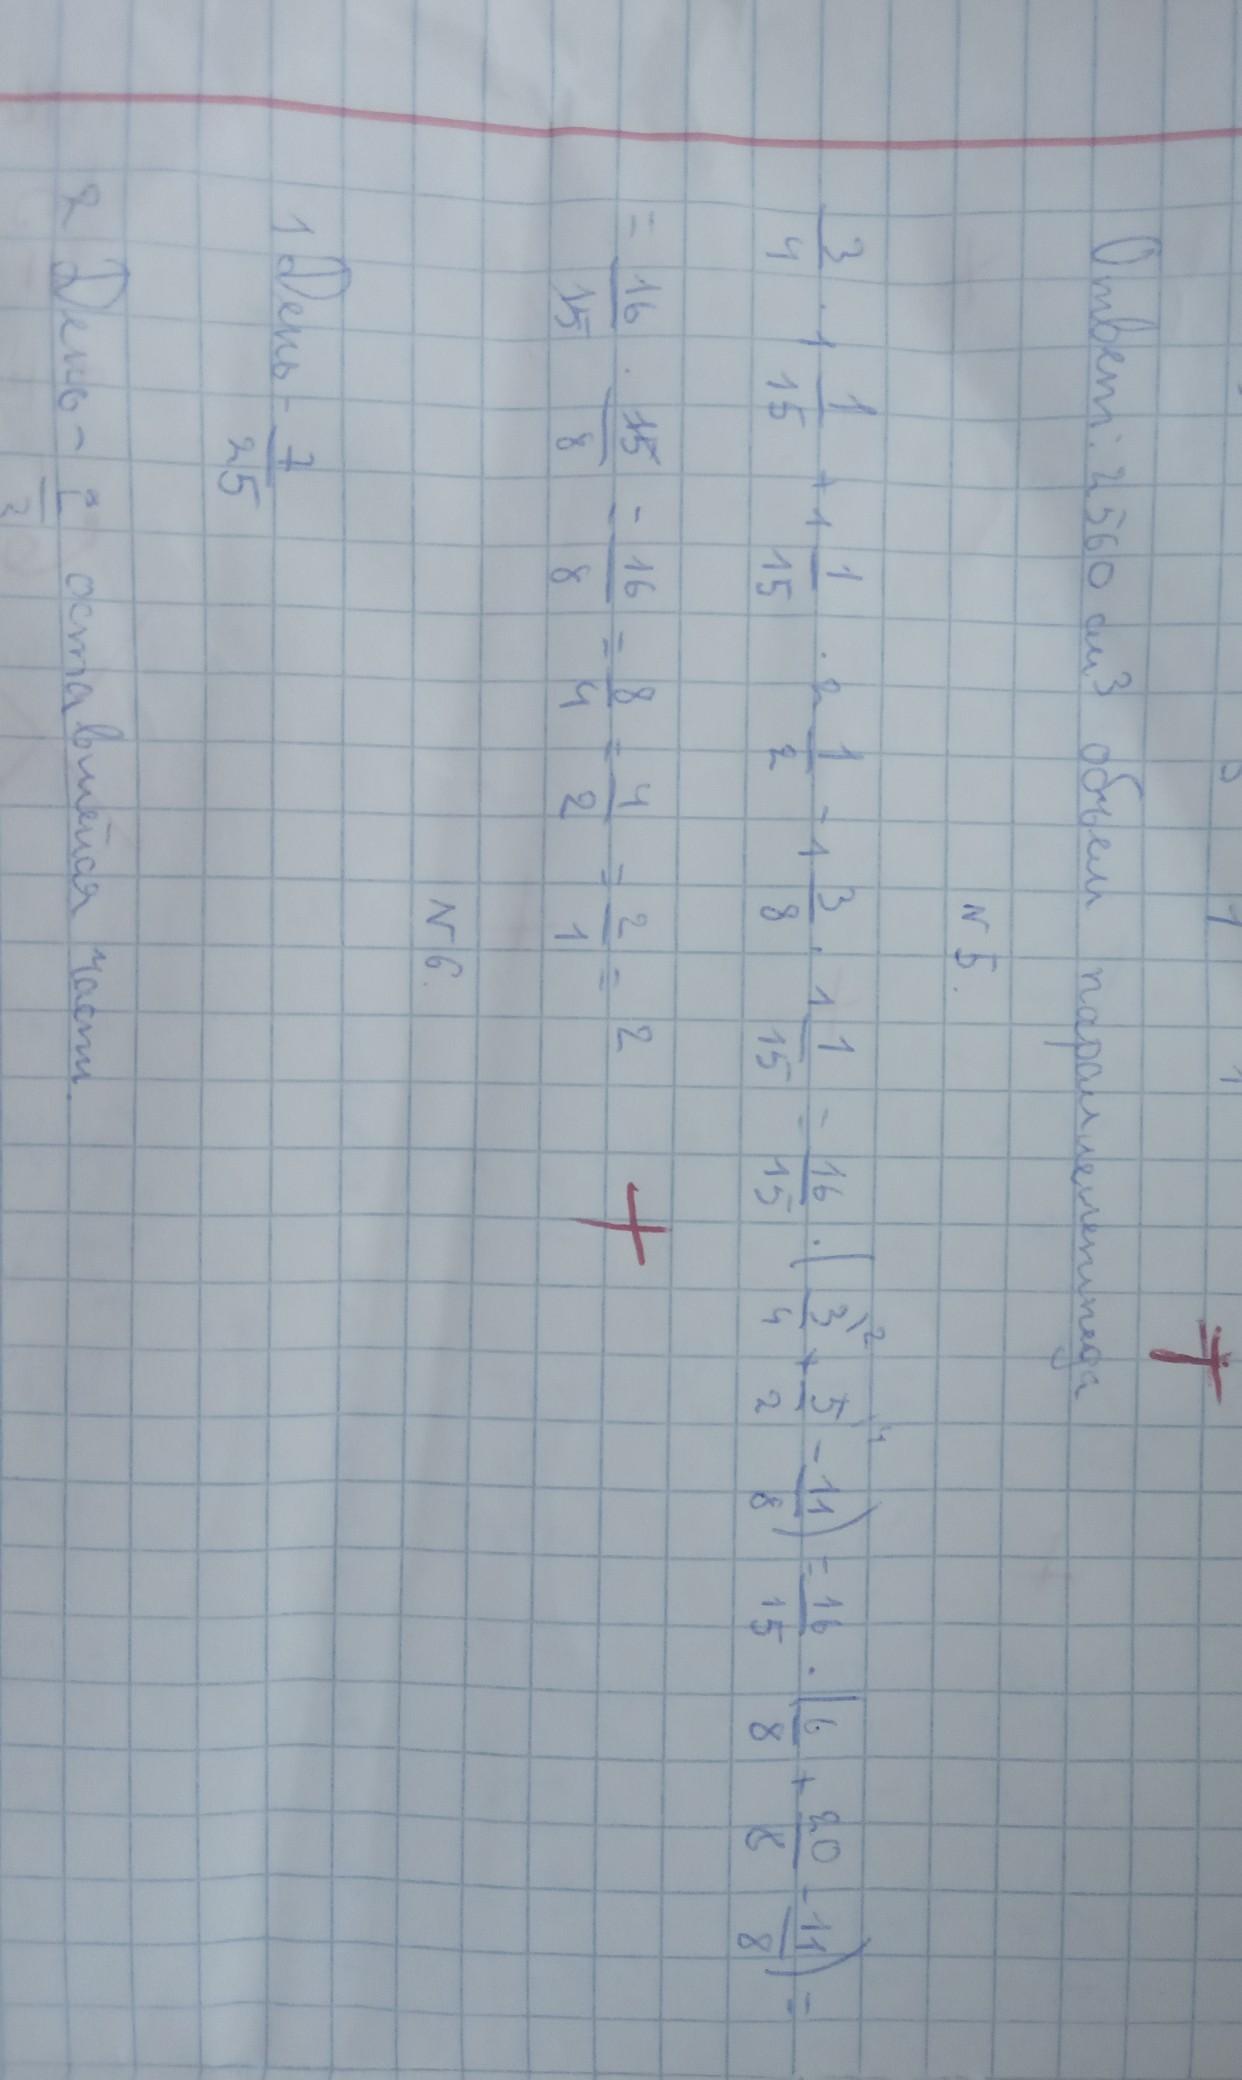 Ответ: 2560 см³ объем параллелепипеда
N 5.
3/4 · 1 1/15 + 1 1/15 · 2 1/2 - 1 3/8 · 1 1/15 = 16/15 · (3/4 \2 + 5/2 \4 - 11/8) = 16/15 · (6/8 + 20/8 - 11/8) =
= 16/15 · 15/8 = 16/8 = 8/4 = 4/2 = 2/1 = 2
N 6.
1 День - 7/25
2 День - оставшейся части.